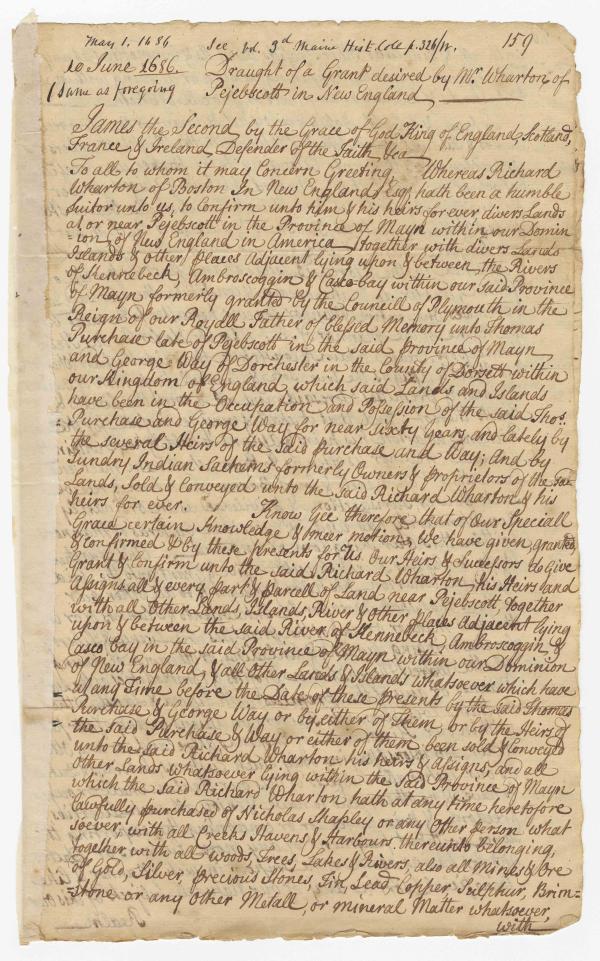 May 1. 1686 See vol. 3d Maine Hist. Coll p. 326/W. 159
10 June 1686. Draught of a Grant desired by Mr. Wharton of
(Same as foregoing Pejebscott in New England
James the Second by the Grace of God King of England, Scotland,
France & Ireland Defender of the Faith &ca
To all to whom it may Concern Greeting Whereas Richard
Wharton of Boston In New England Esqr. hath been a humble
Suitor unto us, to Confirm unto him & his heirs for ever, divers Lands
at, or near Pejebscott in the Province of Mayn within our Domin
=ion of New England in America together with divers Lands
Islands & other places Adjacent lying upon & between the Rivers
of Kennebeck, Ambroscoggin & Casco bay within our said Province
of Mayn formerly granted by the Councill of Plymouth in the
Reign of our Royall Father of blessed Memory unto Thomas
Purchase late of Pejebscott in the said province of Mayn
and George Way of Dorchester in the County of Dorsett within
our Kingdom of England, which said Lands and Islands
have been in the Occupation and Possession of the said Thos.
Purchase and George Way for near sixty Years and lately by
the several Heirs of the said Purchase and Way; And by
Sundry Indian Sachams formerly Owners & proprietors of the said
Lands, Sold & Conveyed unto the said Richard Wharton & his
heirs for ever. Know Yee therefore that of Our Speciall
Grace certain Knowledge & meer motion, We have given, granted,
& confirmed & by these presents for Us Our Heirs & Successors do Give
Grant & Confirm unto the said Richard Wharton, his Heirs and
Assigns all & every part & parcell of Land near Pejebscott, together
with all Other Lands, Islands, River & Other places Adjacent lying
upon & between the said River of Kennebeck, Ambroscoggin &
Casco bay in the said Province of Mayn within our Dominion
of New England, & all Other Lands & Islands whatsoever which have
at any Time before the Date of these presents by the said Thomas
Purchase & George Way or by either of Them, or by the Heirs of
the said Purchase & Way or either of them been sold & Conveyed
unto the said Richard Wharton his heirs & Assigns, and all
Other Lands whatsoever lying within the said Province of Mayn
which the said Richard Wharton hath at any time heretofore
lawfully purchased of Nicholas Shapley or any Other person what
soever, with all Creeks Havens & Harbours, thereunto belonging,
together with all woods, Trees, Lakes & Rivers, also all Mines & Ore
of Gold, Silver, precious Stones, Tin, Lead, Copper, Sulphur, Brim=
=stone or any Other Metall, or mineral Matter whatsoever,
with